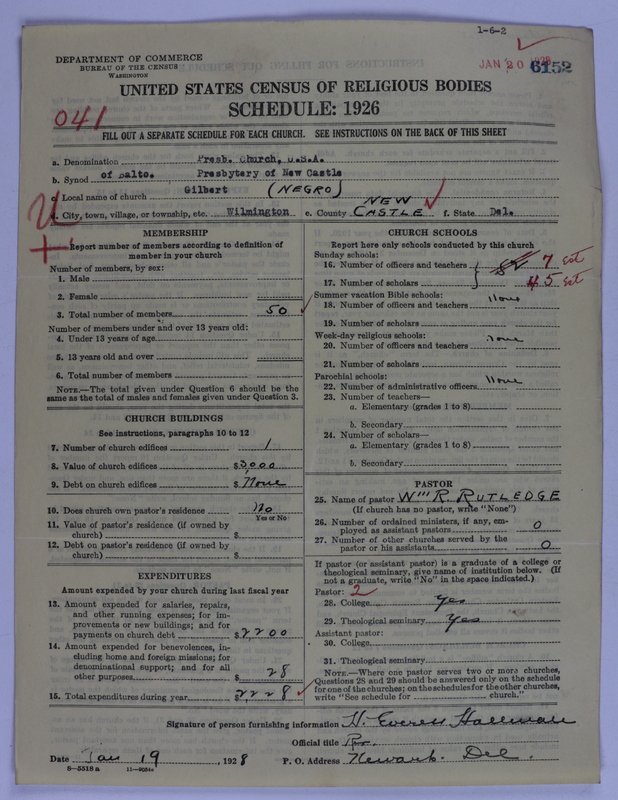 1-6-2
DEPARTMENT OF COMMERCE
BUREAU OF THE CENSUS
WASHINGTON
JAN 20 1928 6152
UNITED STATES CENSUS OF RELIGIOUS BODIES
SCHEDULE: 1926
041
FILL OUT A SEPARATE SCHEDULE FOR EACH CHURCH. SEE INSTRUCTIONS ON THE BACK OF THIS SHEET
a. Denomination Presb. Church, U.S.A.
b. Synod of Balto. Presbytery of New Castle
c. Local name of church Gilbert (NEGRO)
d. City, town, village, or township, etc. Wilmington e. County NEW CASTLE f. State Del.
U
+
MEMBERSHIP
Report number of members according to definition of member in your church
Number of members, by sex:
1. Male
2. Female
3. Total number of members 50
Number of members under and over 13 years old:
4. Under 13 years of age
5. 13 years old and over
6. Total number of members
NOTE.—The total given under Question 6 should be the same as the total of males and females given under Question 3.
CHURCH BUILDINGS
See instructions, paragraphs 10 to 12
7. Number of church edifices 1
8. Value of church edifices $3,000
9. Debt on church edifices $ None
10. Does church own pastor's residence No
Yes or No
11. Value of pastor's residence (if owned by
church) $
12. Debt on pastor's residence (if owned by
church) $
EXPENDITURES
Amount expended by your church during last fiscal year
13. Amount expended for salaries, repairs,
and other running expenses; for im-
provements or new buildings; and for
payments on church debt $2200
14. Amount expended for benevolences, in-
cluding home and foreign missions; for
denominational support; and for all
other purposes $ 28
15. Total expenditures during year $2228
CHURCH SCHOOLS
Report here only schools conducted by this church
Sunday schools:
16. Number of officers and teachers 7 Est
17. Number of scholars 45 Est
Summer vacation Bible schools:
18. Number of officers and teachers None
19. Number of scholars
Week-day religious schools:
20. Number of officers and teachers none
21. Number of scholars
Parochial schools:
22. Number of administrative officers None
23. Number of teachers—
a. Elementary (grades 1 to 8)
b. Secondary
24. Number of scholars—
a. Elementary (grades 1 to 8)
b. Secondary
PASTOR
25. Name of pastor Wm R. RUTLEDGE
(If church has no pastor, write "None")
26. Number of ordained ministers, if any, em-
ployed as assistant pastors 0
27. Number of other churches served by the
pastor or his assistants 0
If pastor (or assistant pastor) is a graduate of a college or
theological seminary, give name of institution below. (If
not a graduate, write "No" in the space indicated.)
Pastor: 2
28. College yes
29. Theological seminary Yes
Assistant pastor:
30. College
31. Theological seminary
NOTE.—Where one pastor serves two or more churches,
Questions 28 and 29 should be answered only on the schedule
for one of the churches; on the schedules for the other churches,
write "See schedule for church."
Signature of person furnishing information H. Everett Hallman
Official title
Date Jan 19, 1928 P. O. Address Newark. Del.
8-5518 a